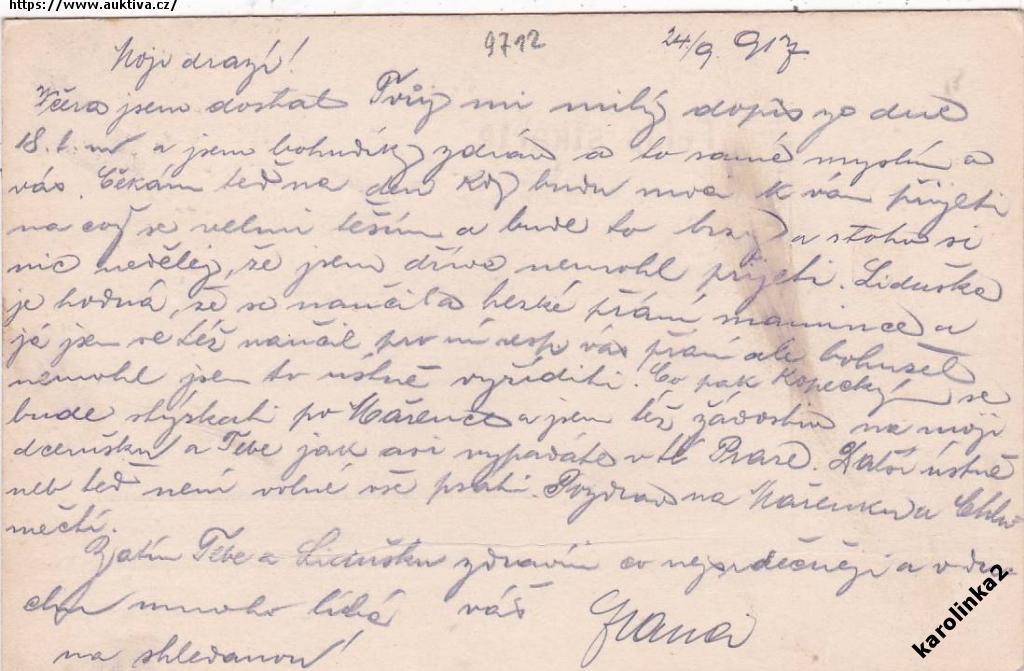 https://www.auktiva.cz/
9712
24/9 917.
Moji drazí!
Včera jsem dostal Tvůj mi milý dopis ze dne
18. t. m. a jsem bohudík zdráv a to samé myslím o
vás. Čekám teď na den kdy budu moci k vám přijeti
na což se velmi těším a bude to brzy a z toho si
nic nedělej, že jsem dříve nemohl přijeti. Liduška
je hodná, že se naučila hezké přání mamince a
já jsem se též naučil pro ni resp. vás přání ale bohužel
nemohl jsem to ústně vyříditi. Co pak Kopecký se
bude stýskati po Mařence a jsem též žádostiv na moji
dcerušku a Tebe jak asi vypadáte v té Praze. Další ústně
neb teď není volné vše psati. Pozdrav na Mařenku a Chlu
mečtí.
Zatím Tebe a Lidušku zdravím co nejsrdečněji a v du-
chu mnoho líbá váš
na shledanou!
karolinka2